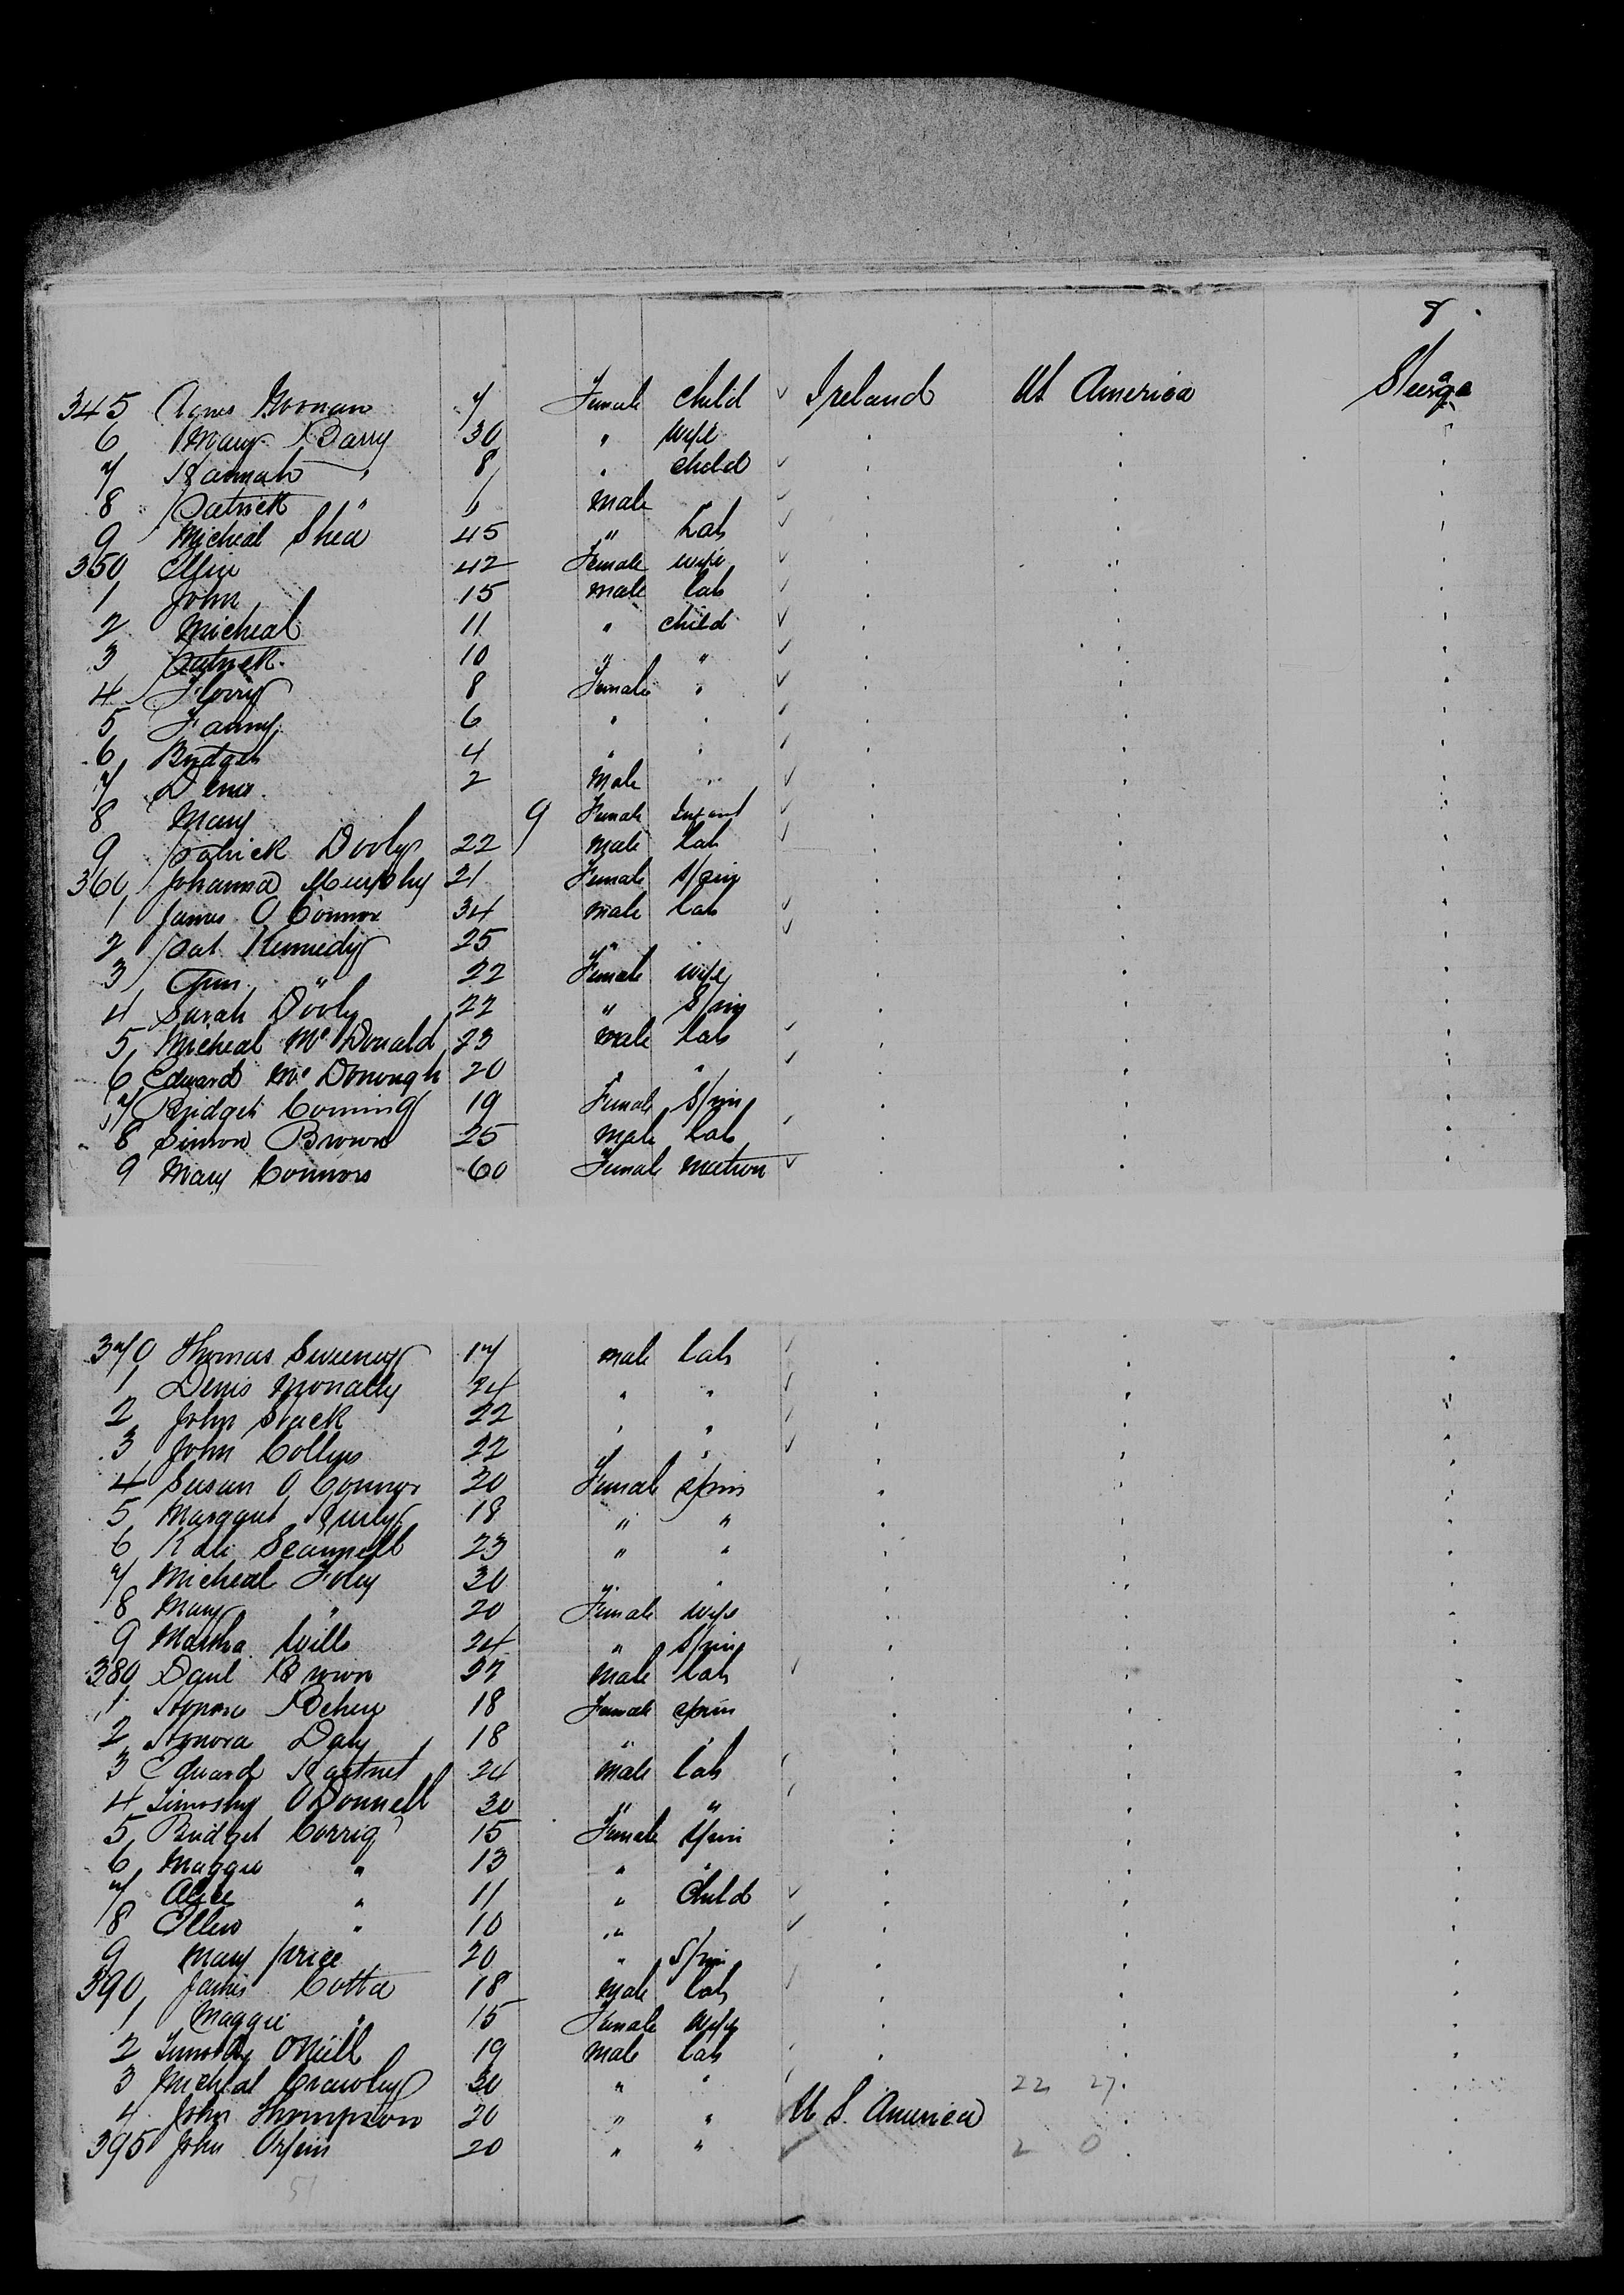 8
345 Agnes Noonan 7 Female Child ✓ Ireland Ut America Steerge
6 Mary Barry 30 " wife
7 Hannah " 8 " child ✓
8 Patrick " 6 male ✓
9 Micheal Shea 45 " Lab ✓
350 Ellen 42 Female wife ✓
1 John 15 male lab ✓
2 Micheal 11 " child ✓
3 Patrick 10 " " ✓
4 Florry 8 Female " ✓
5 Fanny 6 " " ✓
6 Bridget 4 " " ✓
7 Denis 2 Male " ✓
8 Mary 9 Female Infant ✓
9 Patrick Dooly 22 male lab ✓
360 Johanna Murphy 21 Female Spin
1 James O Connor 34 male lab ✓
2 Pat Kennedy 25 " " ✓
3 " 22 Female wife
4 Sarah Dooly 22 " Spin
5 Micheal Mc Donald 23 male lab ✓
6 Edward Mc Donough 20 " " ✓
7 Bridget Coming 19 Female Spin
8 Simon Brown 25 male lab ✓
9 Mary Connors 60 Female matron ✓
370 Thomas Sweeney 17 male lab ✓
1 Denis 24 " " ✓
2 John Stack 22 " " ✓
3 John Collins 22 " " ✓
4 Susan O Connor 20 Female spin
5 Margaret 18 " "
6 Kate Scannell 23 " "
7 Micheal Foley 30 " "
8 Mary " 20 Female wife
9 Martha Wills 24 " Spin
380 Danl Brown 27 male lab ✓
1 Honora 18 Female spin
2 Honora Daly 18 " "
3 Edward 24 male lab
4 Timothy O Donnell 30 " "
5 Bridget Corrig 15 Female Spin
6 Maggie " 13 " "
7 Alice " 11 " Child ✓
8 Ellen " 10 " ✓
9 Mary Price 20 " Spin
390 James Cotta 18 male lab ✓
1 Maggie " 15 Female wife
2 Timothy O Neill 19 male lab
3 Micheal Crawley 30 " " 22 27
4 John Thompson 20 " " U S. America
395 John 20 " " ✓ 2 0
51